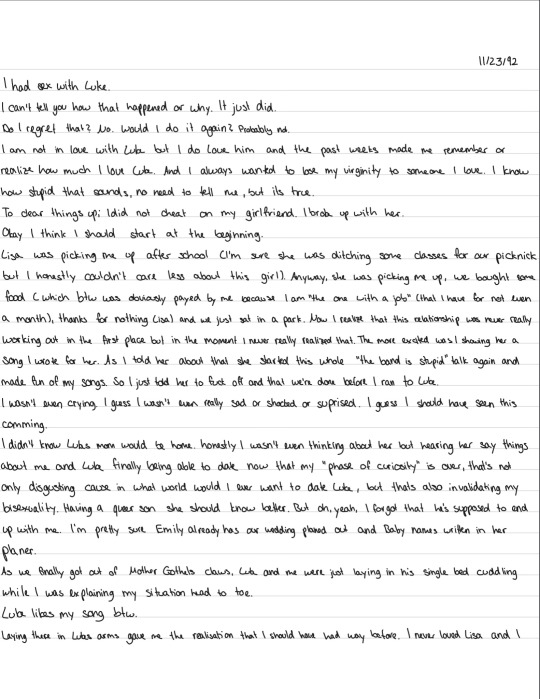 11/23/92
I had sex with Luke.
I can't tell you how that happened or why. It just did.
Do I regret that? No. Would I do it again? Probably not.
I am not in love with Luke but I do love him and the past weeks made me remember or
realize how much I love Luke. And I always wanted to lose my virginity to someone I love. I know
how stupid that sounds, no need to tell me, but its true.
To clear things up; I did not cheat on my girlfriend. I broke up with her.
Okay I think I should start at the beginning.
Lisa was picking me up after school (I'm sure she was ditching some classes for our picknick
but I honestly couldn't care less about this girl). Anyway, she was picking me up, we bought some
food (which btw was obviously payed by me because I am "the one with a job" (that I have for not even
a month), thanks for nothing Lisa) and we just sat in a park. Now I realize that this relationship was never really
working out in the first place but in the moment I never really realized that. The more excited was I showing her a
song I wrote for her. As I told her about that she started this whole "the band is stupid" talk again and
made fun of my songs. So I just told her to fuck off and that we're done before I ran to Luke.
I wasn't even crying. I guess I wasn't even really sad or shocked or suprised. I guess I should have seen this
comming.
I didn't know Lukes mom would be home. honestly I wasn't even thinking about her but hearing her say things
about me and Luke finally being able to date now that my "phase of curiosity" is over, that's not
only disgusting cause in what world would I ever want to date Luke, but thats also invalidating my
bisexuality. Having a queer son she should know better. But oh, yeah, I forgot that he's supposed to end
up with me. I'm pretty sure Emily already has our wedding planed out and Baby names written in her
planer.
As we finally got out of Mother Gothels claws, Luke and me were just laying in his single bed cuddling
while I was explaining my situation head to toe.
Luke likes my song btw.
Laying there in Lukes arms gave me the realisation that I should have had way before. I never loved Lisa and I